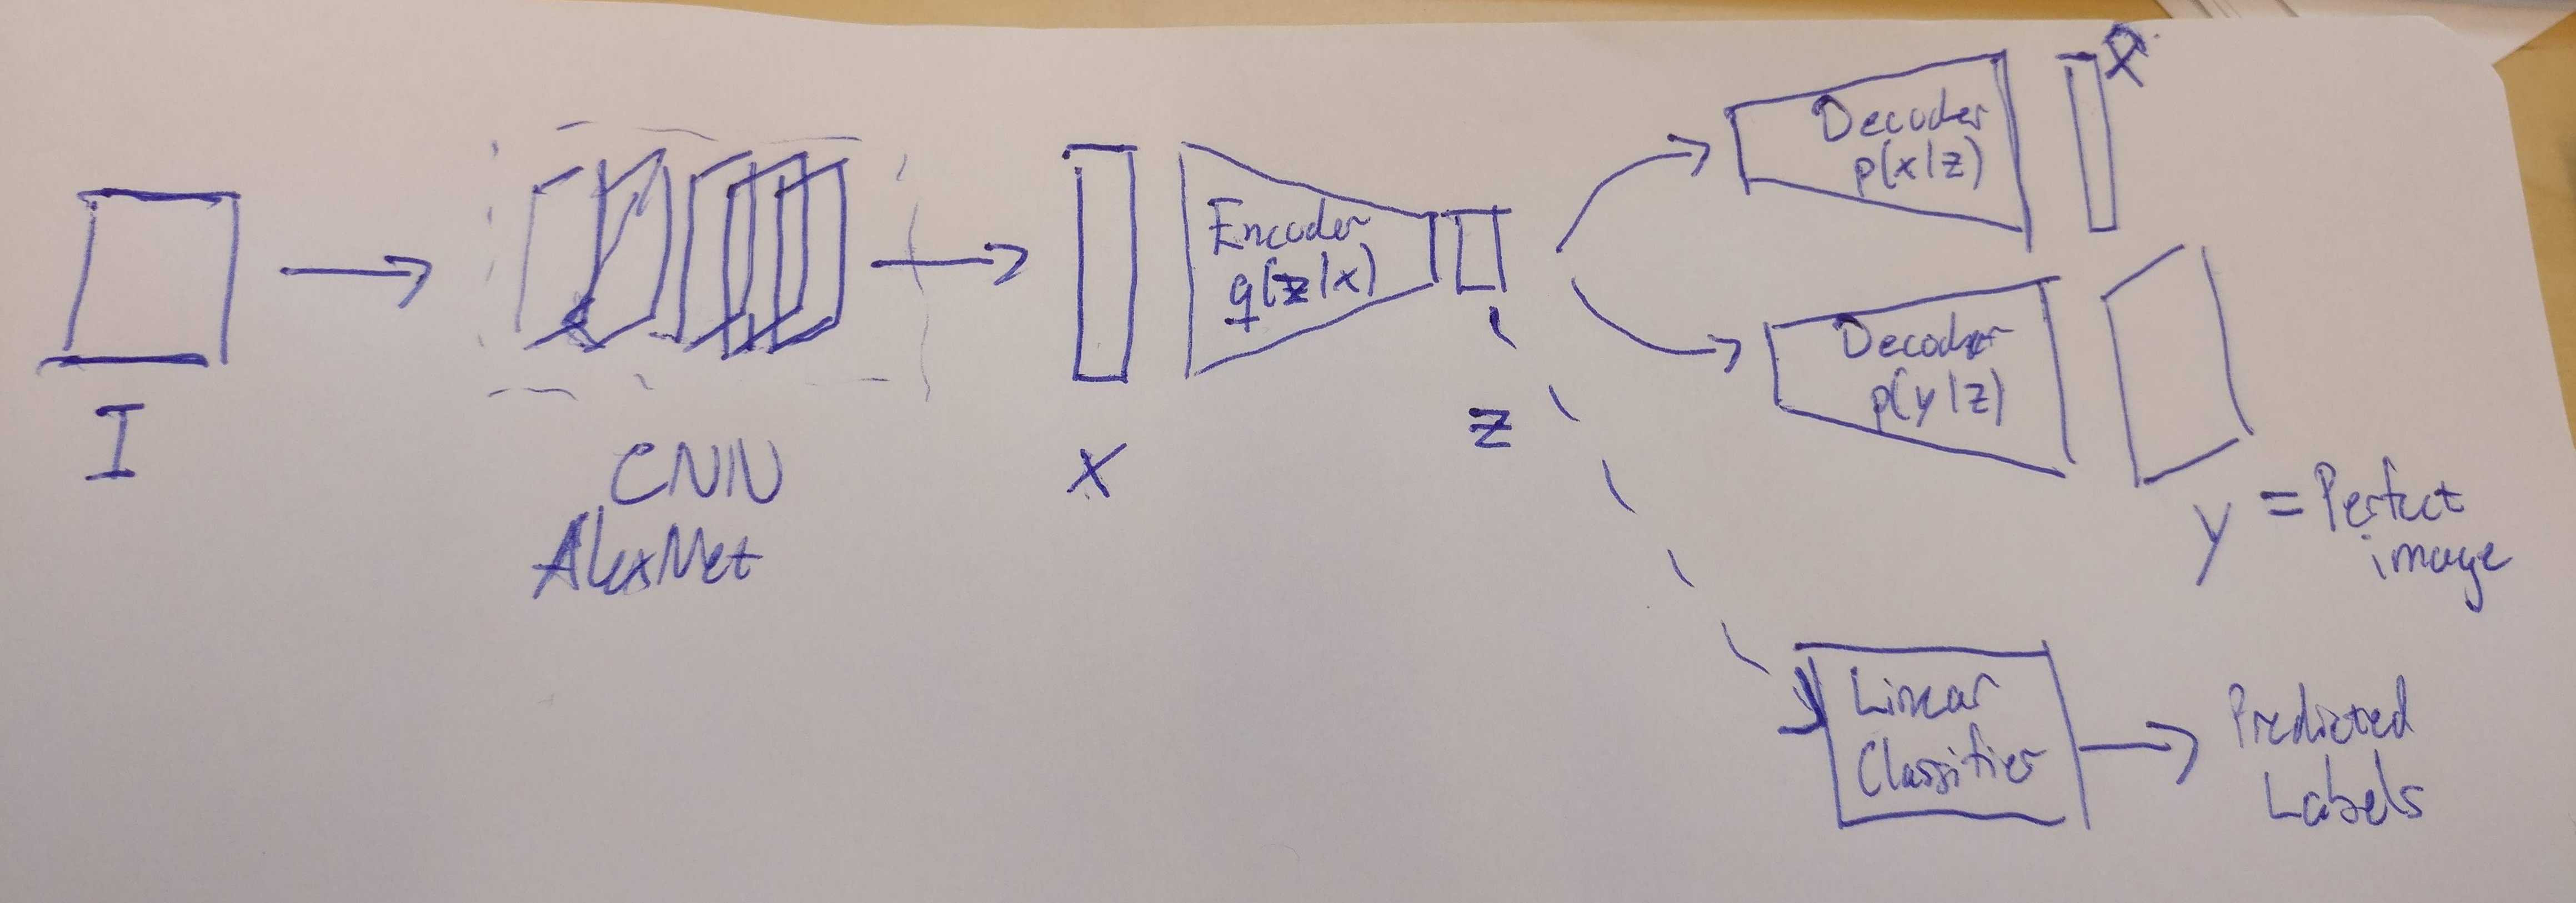 I
CNN
AlexNet
X
Encoder
q(z|x)
z
Decoder
p(x|z)
x̂
Decoder
p(y|z)
y = Perfect
image
Linear
Classifier
Predicted
Labels